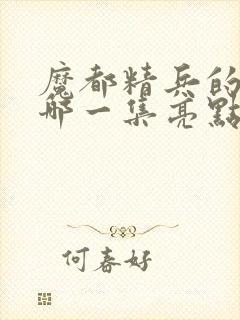 魔都精兵的
哪一集亮點
何春好